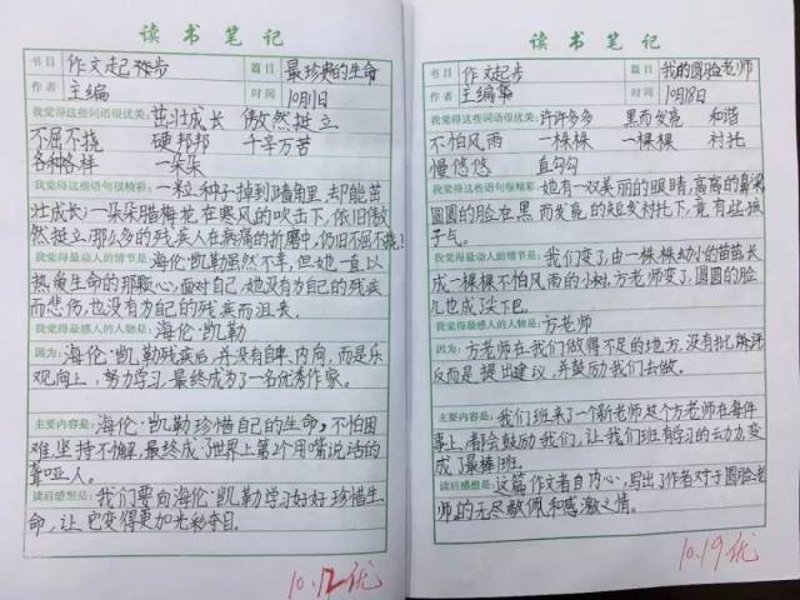 读书笔记
书目 作文起步 篇目 最珍贵的生命
作者 主编 时间 10月11日
我觉得这些词语很优美: 茁壮成长 傲然挺立
不屈不挠 硬邦邦 千辛万苦
各种各样 一朵朵
我觉得这些语句很精彩: 一粒种子掉到墙角里,却能茁
壮成长;一朵朵腊梅花,在寒风的吹击下,依旧傲
然挺立;那么多的残疾人在病痛的折磨中,仍旧不屈不挠!
我觉得最动人的情节是: 海伦·凯勒虽然不幸,但她一直以
热爱生命的那颗心,面对自己,她没有为自己的残疾
而悲伤,也没有为自己的残疾而沮丧。
我觉得最感人的人物是: 海伦·凯勒
因为: 海伦·凯勒残疾后,并没有自卑、内向,而是乐
观向上,努力学习,最终成为了一名优秀作家。
主要内容是: 海伦·凯勒珍惜自己的生命,不怕困
难,坚持不懈,最终成了世界上第1个用嘴说话的
聋哑人。
读后感想是: 我们要向海伦·凯勒学习好好珍惜生
命,让它变得更加光彩夺目。
10.12 优
读书笔记
书目 作文起步 篇目 我的圆脸老师
作者 主编 时间 10月18日
我觉得这些词语很优美: 许许多多 黑而发亮 和谐
不怕风雨 一棵棵 一棵棵 衬托
慢悠悠 直勾勾
我觉得这些语句很精彩: 她有一双美丽的眼睛,高高的鼻梁
圆圆的脸在黑而发亮的短发衬托下,竟有些孩
子气。
我觉得最动人的情节是: 我们变了,由一棵棵幼小的苗苗长
成一棵棵不怕风雨的小树.方老师变了,圆圆的脸
儿也成了尖下巴。
我觉得最感人的人物是: 方老师
因为: 方老师在我们做得不足的地方,没有批评
反而是提出建议,并鼓励我们去做。
主要内容是: 我们班来了一个新老师这个方老师在每件
事上,都会鼓励我们,让我们班有学习的动力,变
成了最棒班。
读后感想是: 这篇作文作者自内心,写出了作者对于圆脸老
师的无尽敬佩和感激之情。
10.19 优